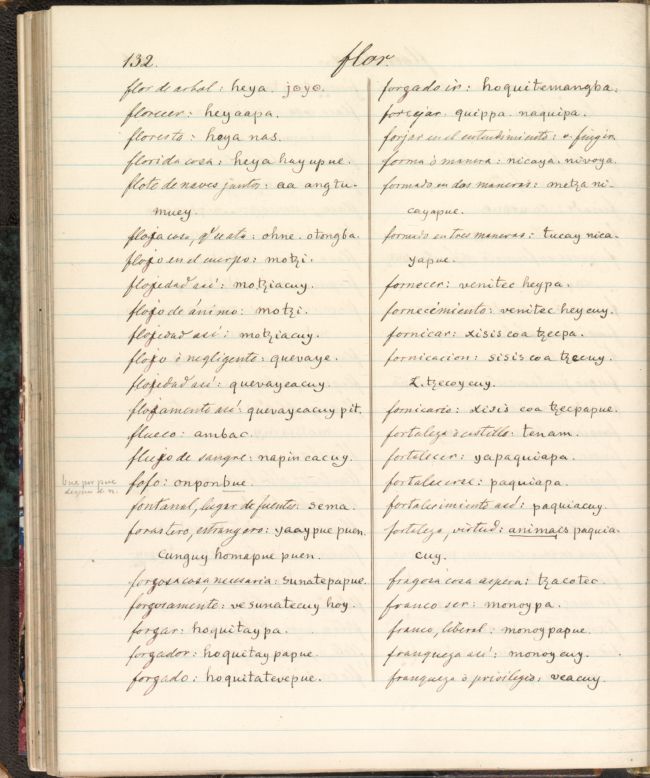 132.
flor.
flor de arbol: heya. joyo.
florecer: heyaapa.
floresta: hoya nas.
florida cosa: heya hay upue.
flota de naves juntas: aa angtu-
muey.
floja cosa, q'ësta: ohne. otongba.
flojo en el cuerpo: motzi.
flojedad así: motziacuy.
flojo de ánimo: motzi.
flojedad así: motziacuy.
flojo ò negligente: quevaye.
flojedad así: quevayeacuy.
flojamente así: quevayeacuy pit.
flueco: ambac.
flujo de sangre: napin cacuy.
bue por pue
despues de n.
fofo: onponbue.
fontanal, lugar de fuentes: sema.
forastero, estrangero: yaaypue puen.
cunguy homapue puen.
forzosa cosa, necesaria: sunatepapue.
forzosamente: ve sunatecuy hoy.
forzar: hoquitaypa.
forzador: hoquitay papue.
forzado: hoquitatevepue.
forzado ir: hoquitemangba.
forcejar: quippa. naquipa.
forjar en el entendimiento: v. fingir.
forma ò manera: nicaya. nivoya.
formado en dos maneras: metza ni-
cayapue.
formado en tres maneras: tucay nica-
yapue.
fornecer: venitec heypa.
fornecimiento: venitec heycuy.
fornicar: xisis coa tzecpa.
fornicacion: sisis coa tzecuy.
tzecoycuy.
fornicario: xisis coa tzecpapue.
fortaleza ò castillo: tenam.
fortalecer: yapaquiapa.
fortalecerse: paquiapa.
fortalecimiento así: paquiacuy.
fortaleza, virtud: animaes paquia-
cuy.
fragosa cosa aspera: tzacotec.
franco ser: monoypa.
franco, liberal: monoypapue.
franqueza así: monoycuy.
franqueza ò privilegio: veacuy.